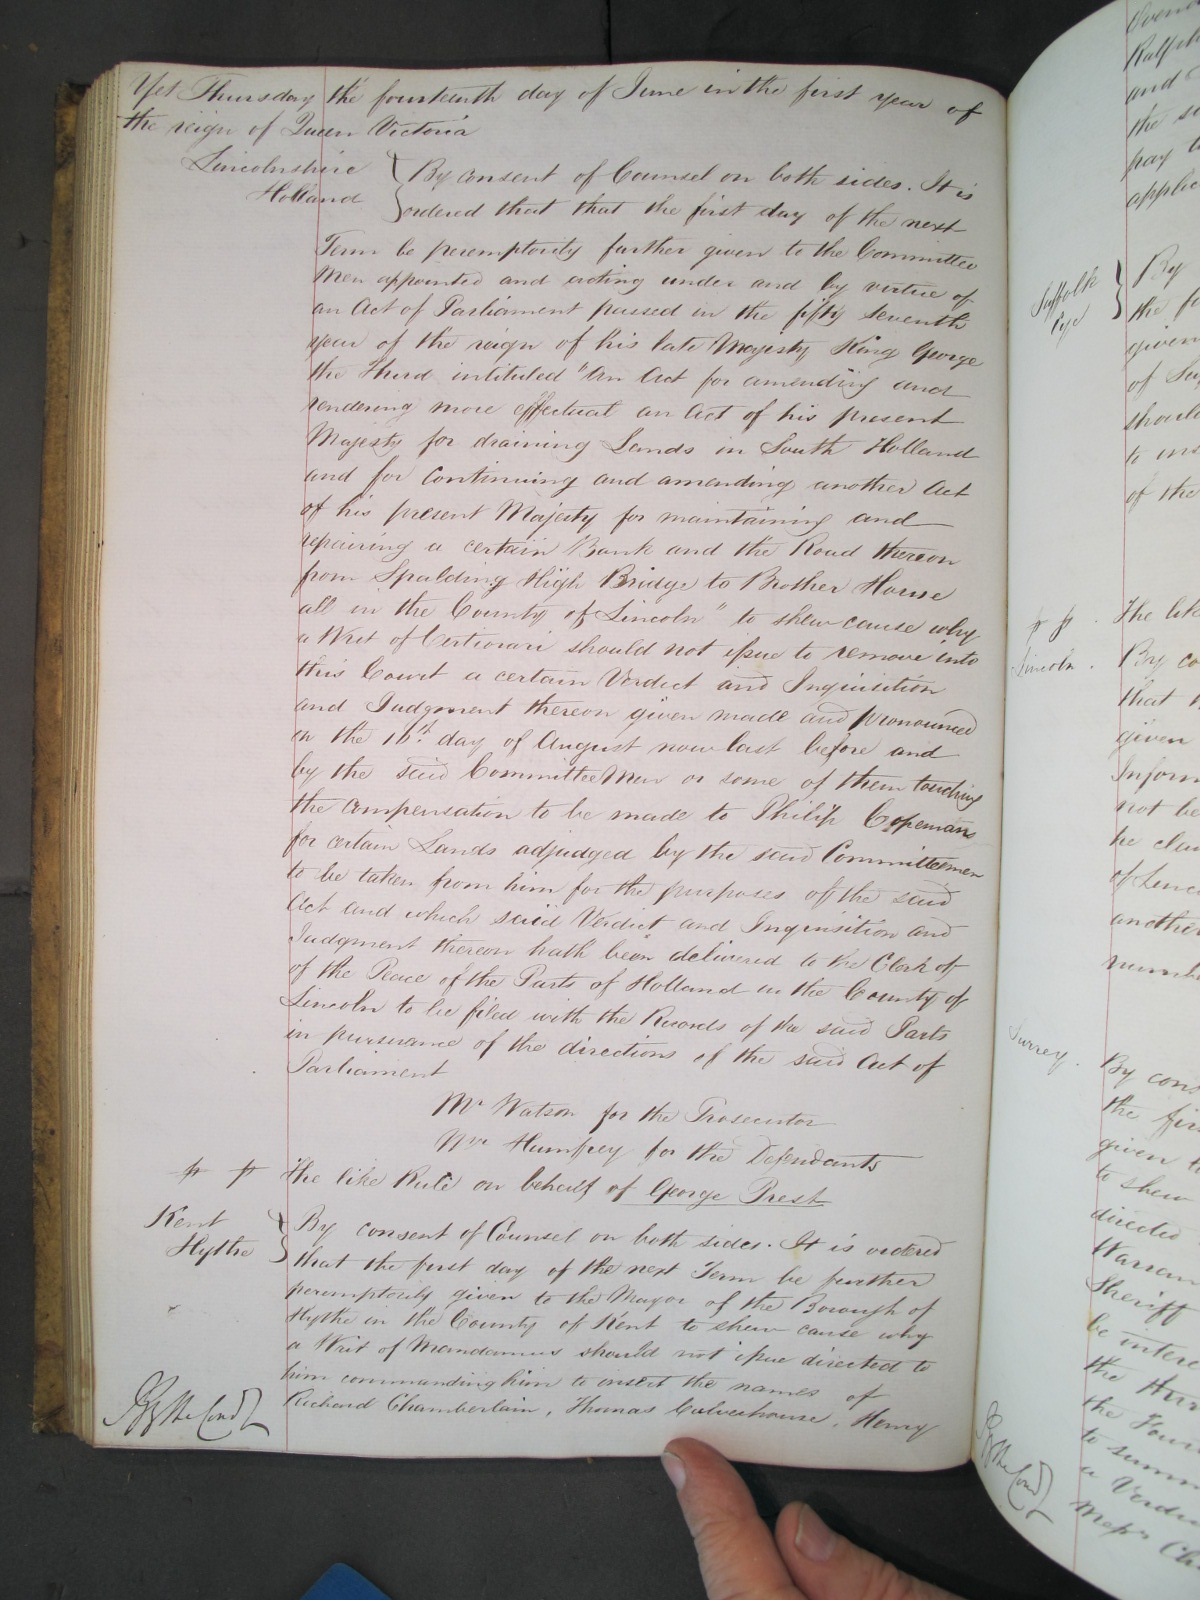 Yet Thursday the fourteenth day of June in the first year of
the reign of Queen Victoria
Lincolnshire
Holland
By consent of Counsel on both sides. It is
ordered that that the first day of the next
Term be peremptorily further given to the Committee
Men appointed and acting under and by virtue of
an Act of Parliament passed in the fifty seventh
year of the reign of his late Majesty King George
the Third intituled "An Act for amending and
rendering more effectual an Act of his present
Majesty for draining Lands in South Holland
and for continuing and amending another Act
of his present Majesty for maintaining and
repairing a certain Bank and the Road thereon
from Spalding High Bridge to Brother House
all in the County of Lincoln" to shew cause why
a Writ of Certiorari should not issue to remove into
this Court a certain Verdict and Inquisition
and Judgment thereon given made and pronounced
on the 16th day of August now last before and
by the said Committee Men or some of them touching
the compensation to be made to Philip Copeman
for certain Lands adjudged by the said Committeemen
to be taken from him for the purposes of the said
Act and which said Verdict and Inquisition and
Judgment thereon hath been delivered to the Clerk of
of the Peace of the Parts of Holland in the County of
Lincoln to be filed with the Records of the said Parts
in pursuance of the directions of the said Act of
Parliament
Mr Watson for the Prosecutor
Mr Humfrey for the Defendants
The like Rule on behalf of George Prest
Kent
Hythe
By consent of Counsel on both sides. It is ordered
that the first day of the next Term be further
peremptorily given to the Mayor of the Borough of
Hythe in the County of Kent to shew cause why
a Writ of Mandamus should not issue directed to
him commanding him to insert the names of
Richard Chamberlain, Thomas Culverhouse, Henry
By the Court
and
the
pay
Suffolk
Eye
By
the
given
of
should
to
of the
The like
Lincoln.
By co
that
given
Inform
not be
be
of Linco
another
number
Surrey.
By cons
the fir
given to
to shew
directed
Warran
Sheriff
be
the
the
to summ
a Verdi
Messrs
By the Court